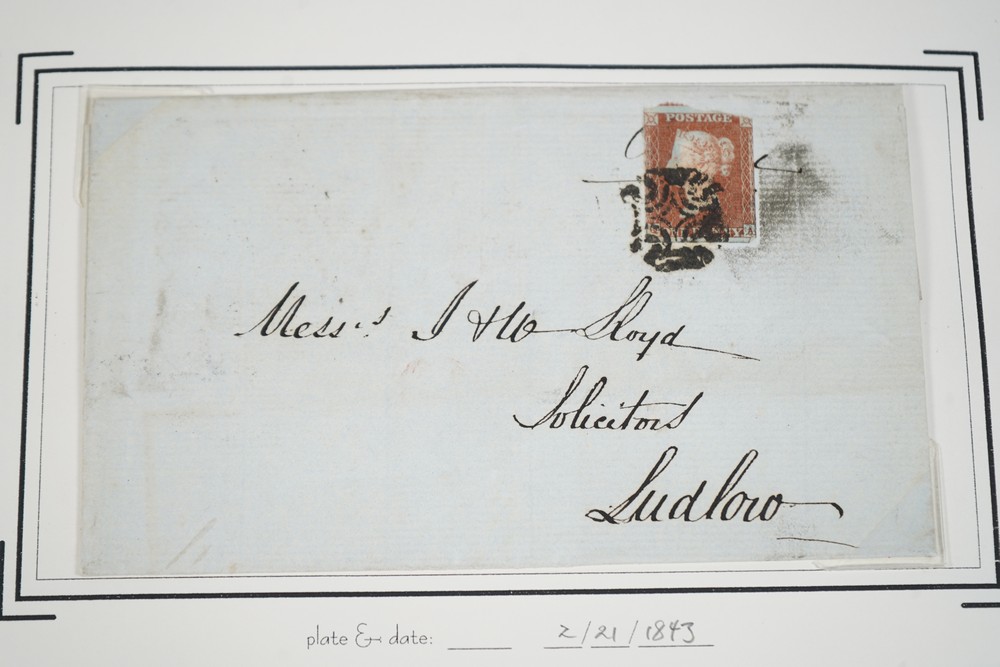 POSTAGE
Mess.rs J & W Lloyd
Solicitors
Ludlow
plate & date: 2/21/1843